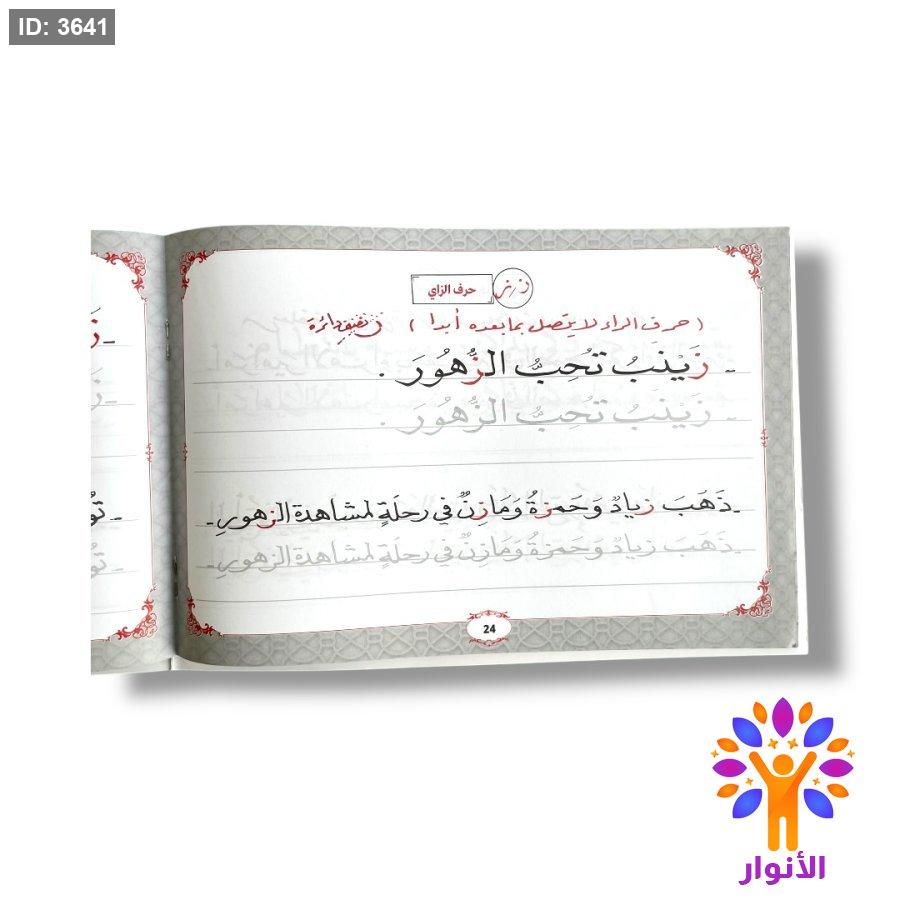 ID: 3641
ز ـز حرف الزاي
( حرف الراء لا يتصل بما بعده أبدا )
- زَيْنَبُ تُحِبُّ الزُّهُورَ .
- زَيْنَبُ تُحِبُّ الزُّهُورَ .
- ذَهَبَ زيادٌ وَحَمزةُ وَمَازِنٌ في رحلَةٍ لمشاهدة الزهورِ -
- ذَهَبَ زيادٌ وَحَمزةُ وَمَازِنٌ في رحلَةٍ لمشاهدة الزهورِ -
24
الأنوار